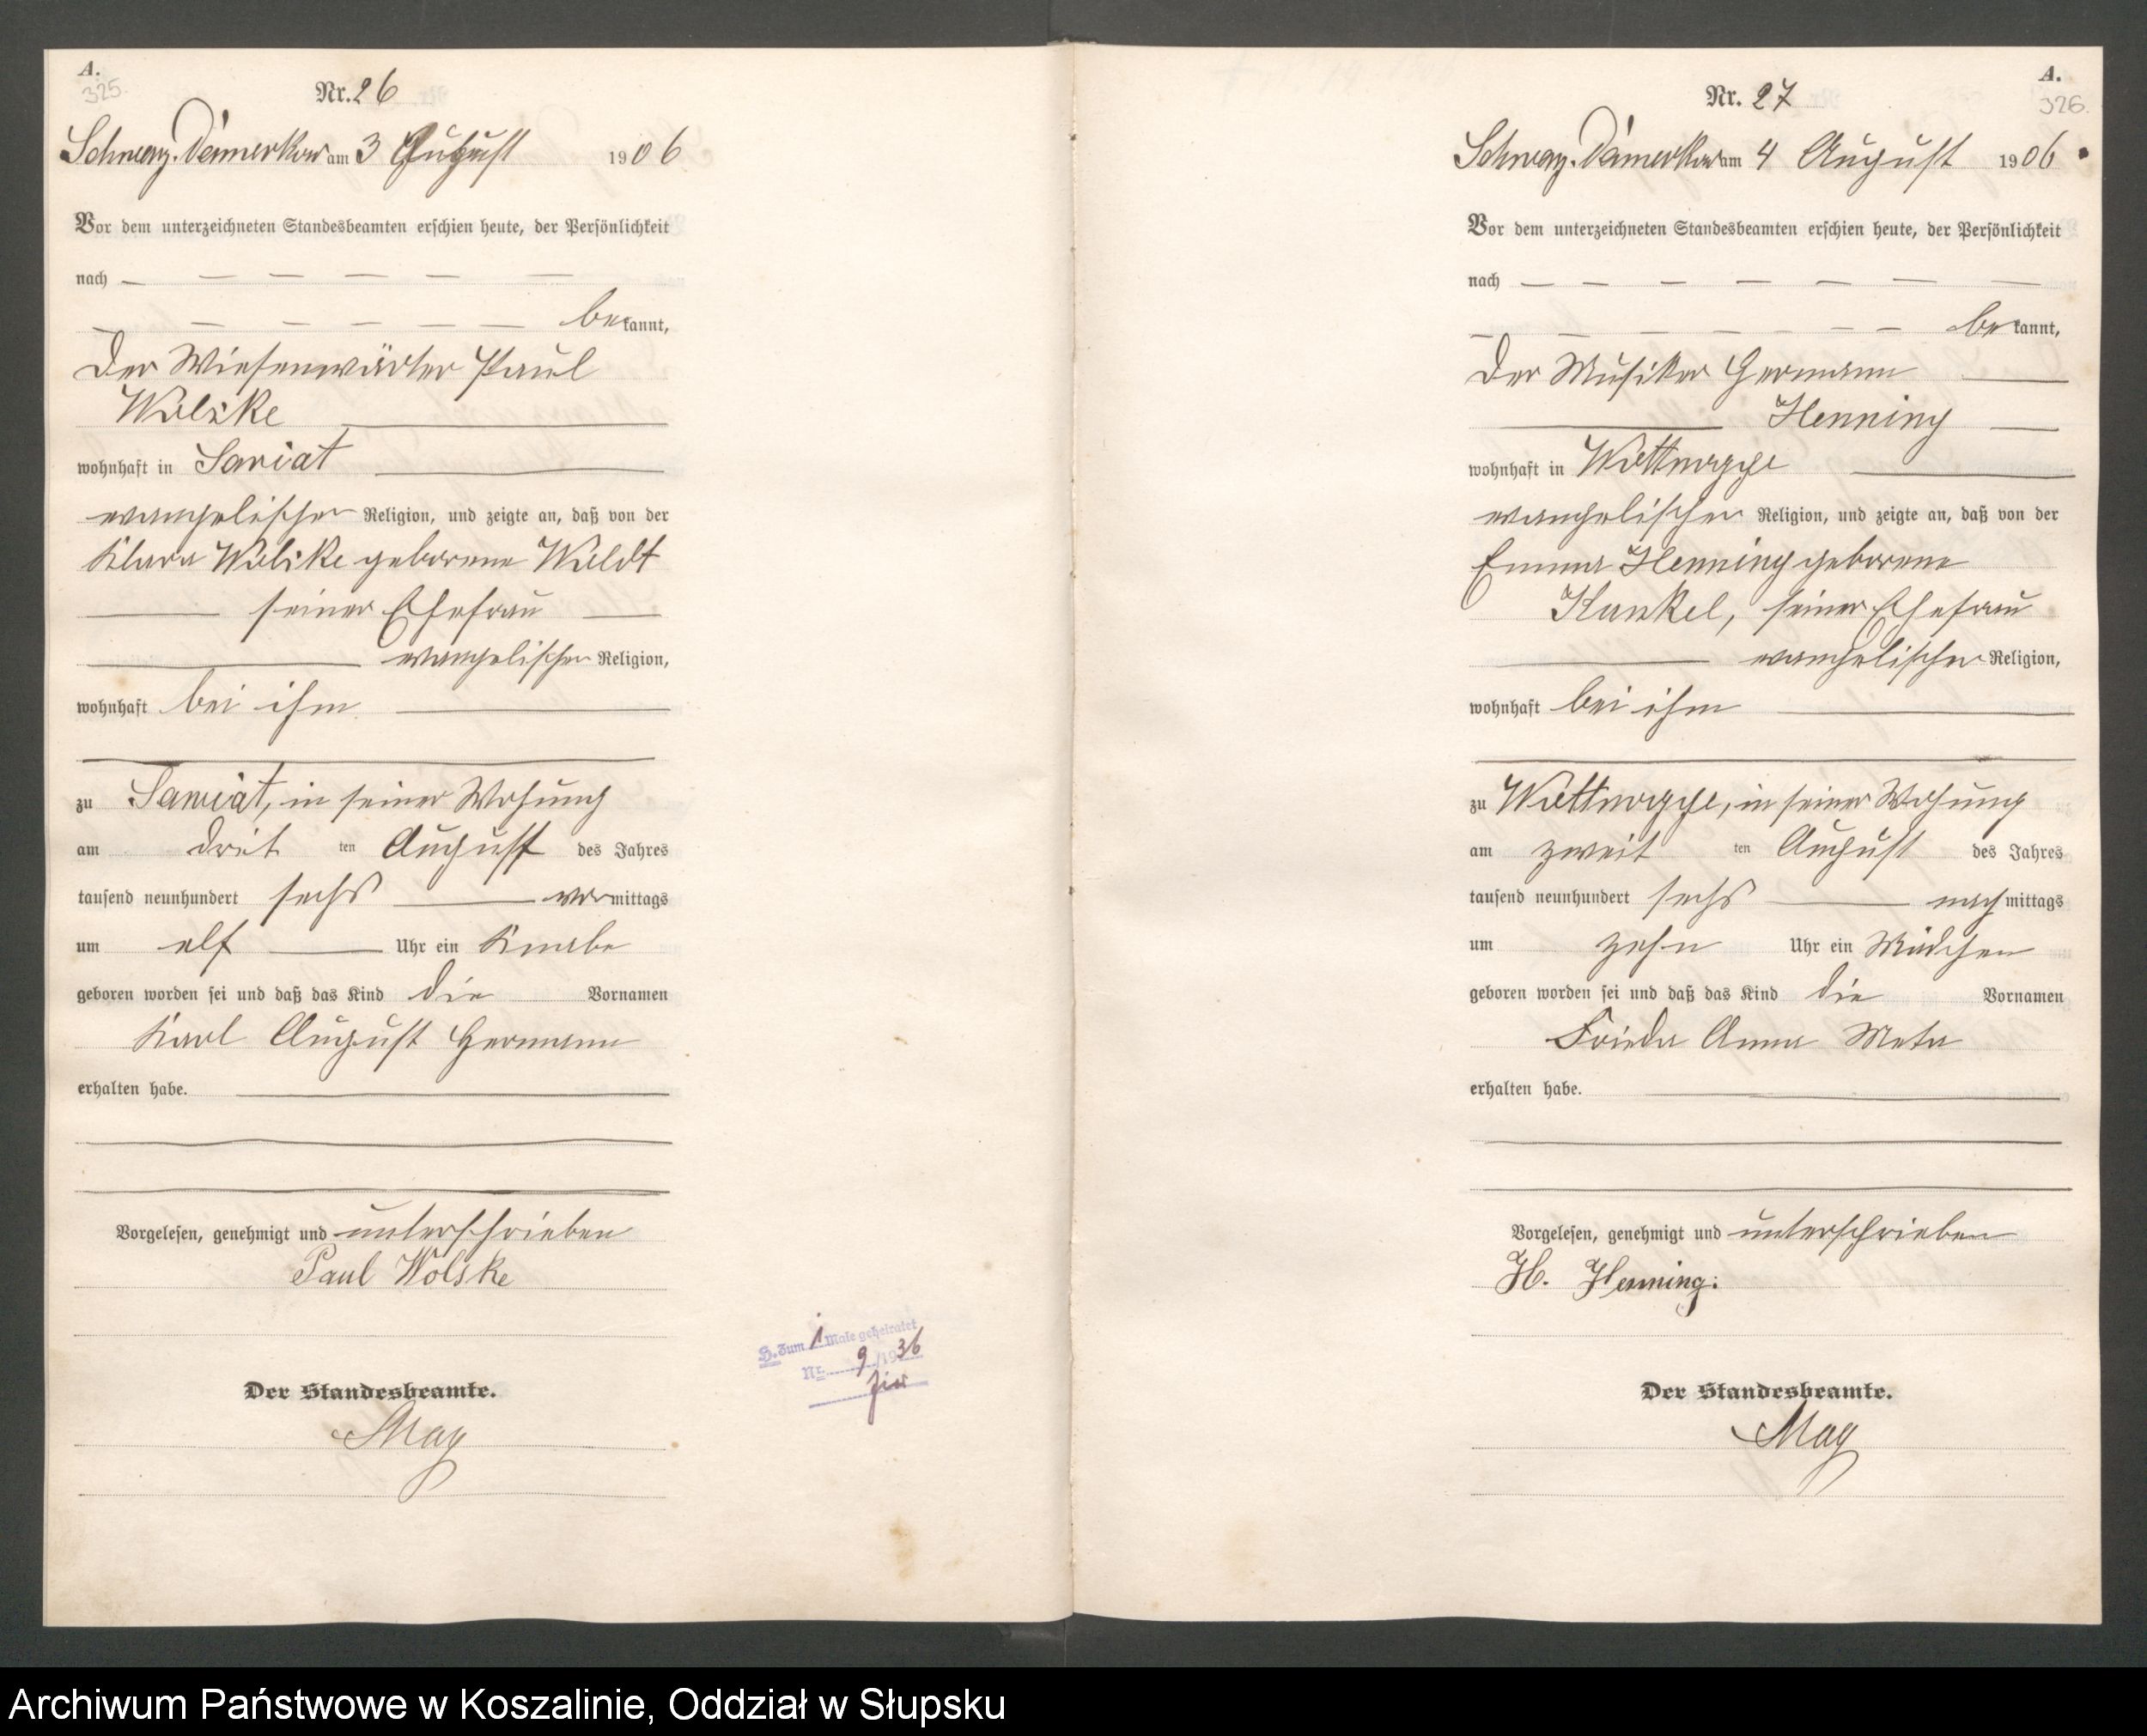 A.
325.
Nr. 26
Schwarz-Damerkow am 3 August 1906
Vor dem unterzeichneten Standesbeamten erschien heute, der Persönlichkeit
nach — — — — — —
— — — — — — bekannt,
der Wiesenwärter Paul
Wolske
wohnhaft in
evangelischer Religion, und zeigte an, daß von der
Klara Wolske geborene
seiner Ehefrau
evangelischer Religion,
wohnhaft bei ihm
zu in seiner Wohnung
am dritten August des Jahres
tausend neunhundert sechs vormittags
um elf Uhr ein Knabe
geboren worden sei und daß das Kind die Vornamen
Karl August Hermann
erhalten habe.
Vorgelesen, genehmigt und unterschrieben
Paul Wolske
H. Zum 1 Male geheiratet
Nr. 9/1936
Der Standesbeamte.
May
A.
326.
Nr. 27
Schwarz-Damerkow am 4 August 1906
Vor dem unterzeichneten Standesbeamten erschien heute, der Persönlichkeit
nach — — — — — — —
— — — — — — — bekannt,
der Musiker Hermann
Henning
wohnhaft in
evangelischer Religion, und zeigte an, daß von der
Emma Henning geborene
Kunkel, seiner Ehefrau
evangelischer Religion,
wohnhaft bei ihm
zu in seiner Wohnung
am zweiten August des Jahres
tausend neunhundert sechs nachmittags
um zehn Uhr ein Mädchen
geboren worden sei und daß das Kind die Vornamen
Frieda Anna Meta
erhalten habe.
Vorgelesen, genehmigt und unterschrieben
H. Henning.
Der Standesbeamte.
May
Archiwum Państwowe w Koszalinie, Oddział w Słupsku